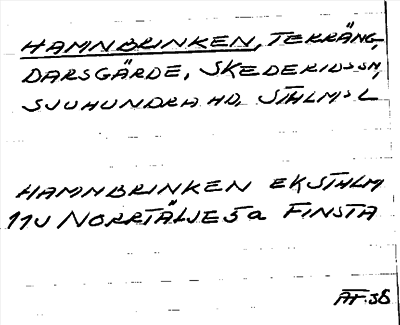 HAMNBRINKEN, TERRÄNG,
DARSGÄRDE, SKEDERIDS SN,
SJUHUNDRA HD, STHLMS L
HAMNBRINKEN EK STHLM
11J NORRTÄLJE 5a FINSTA